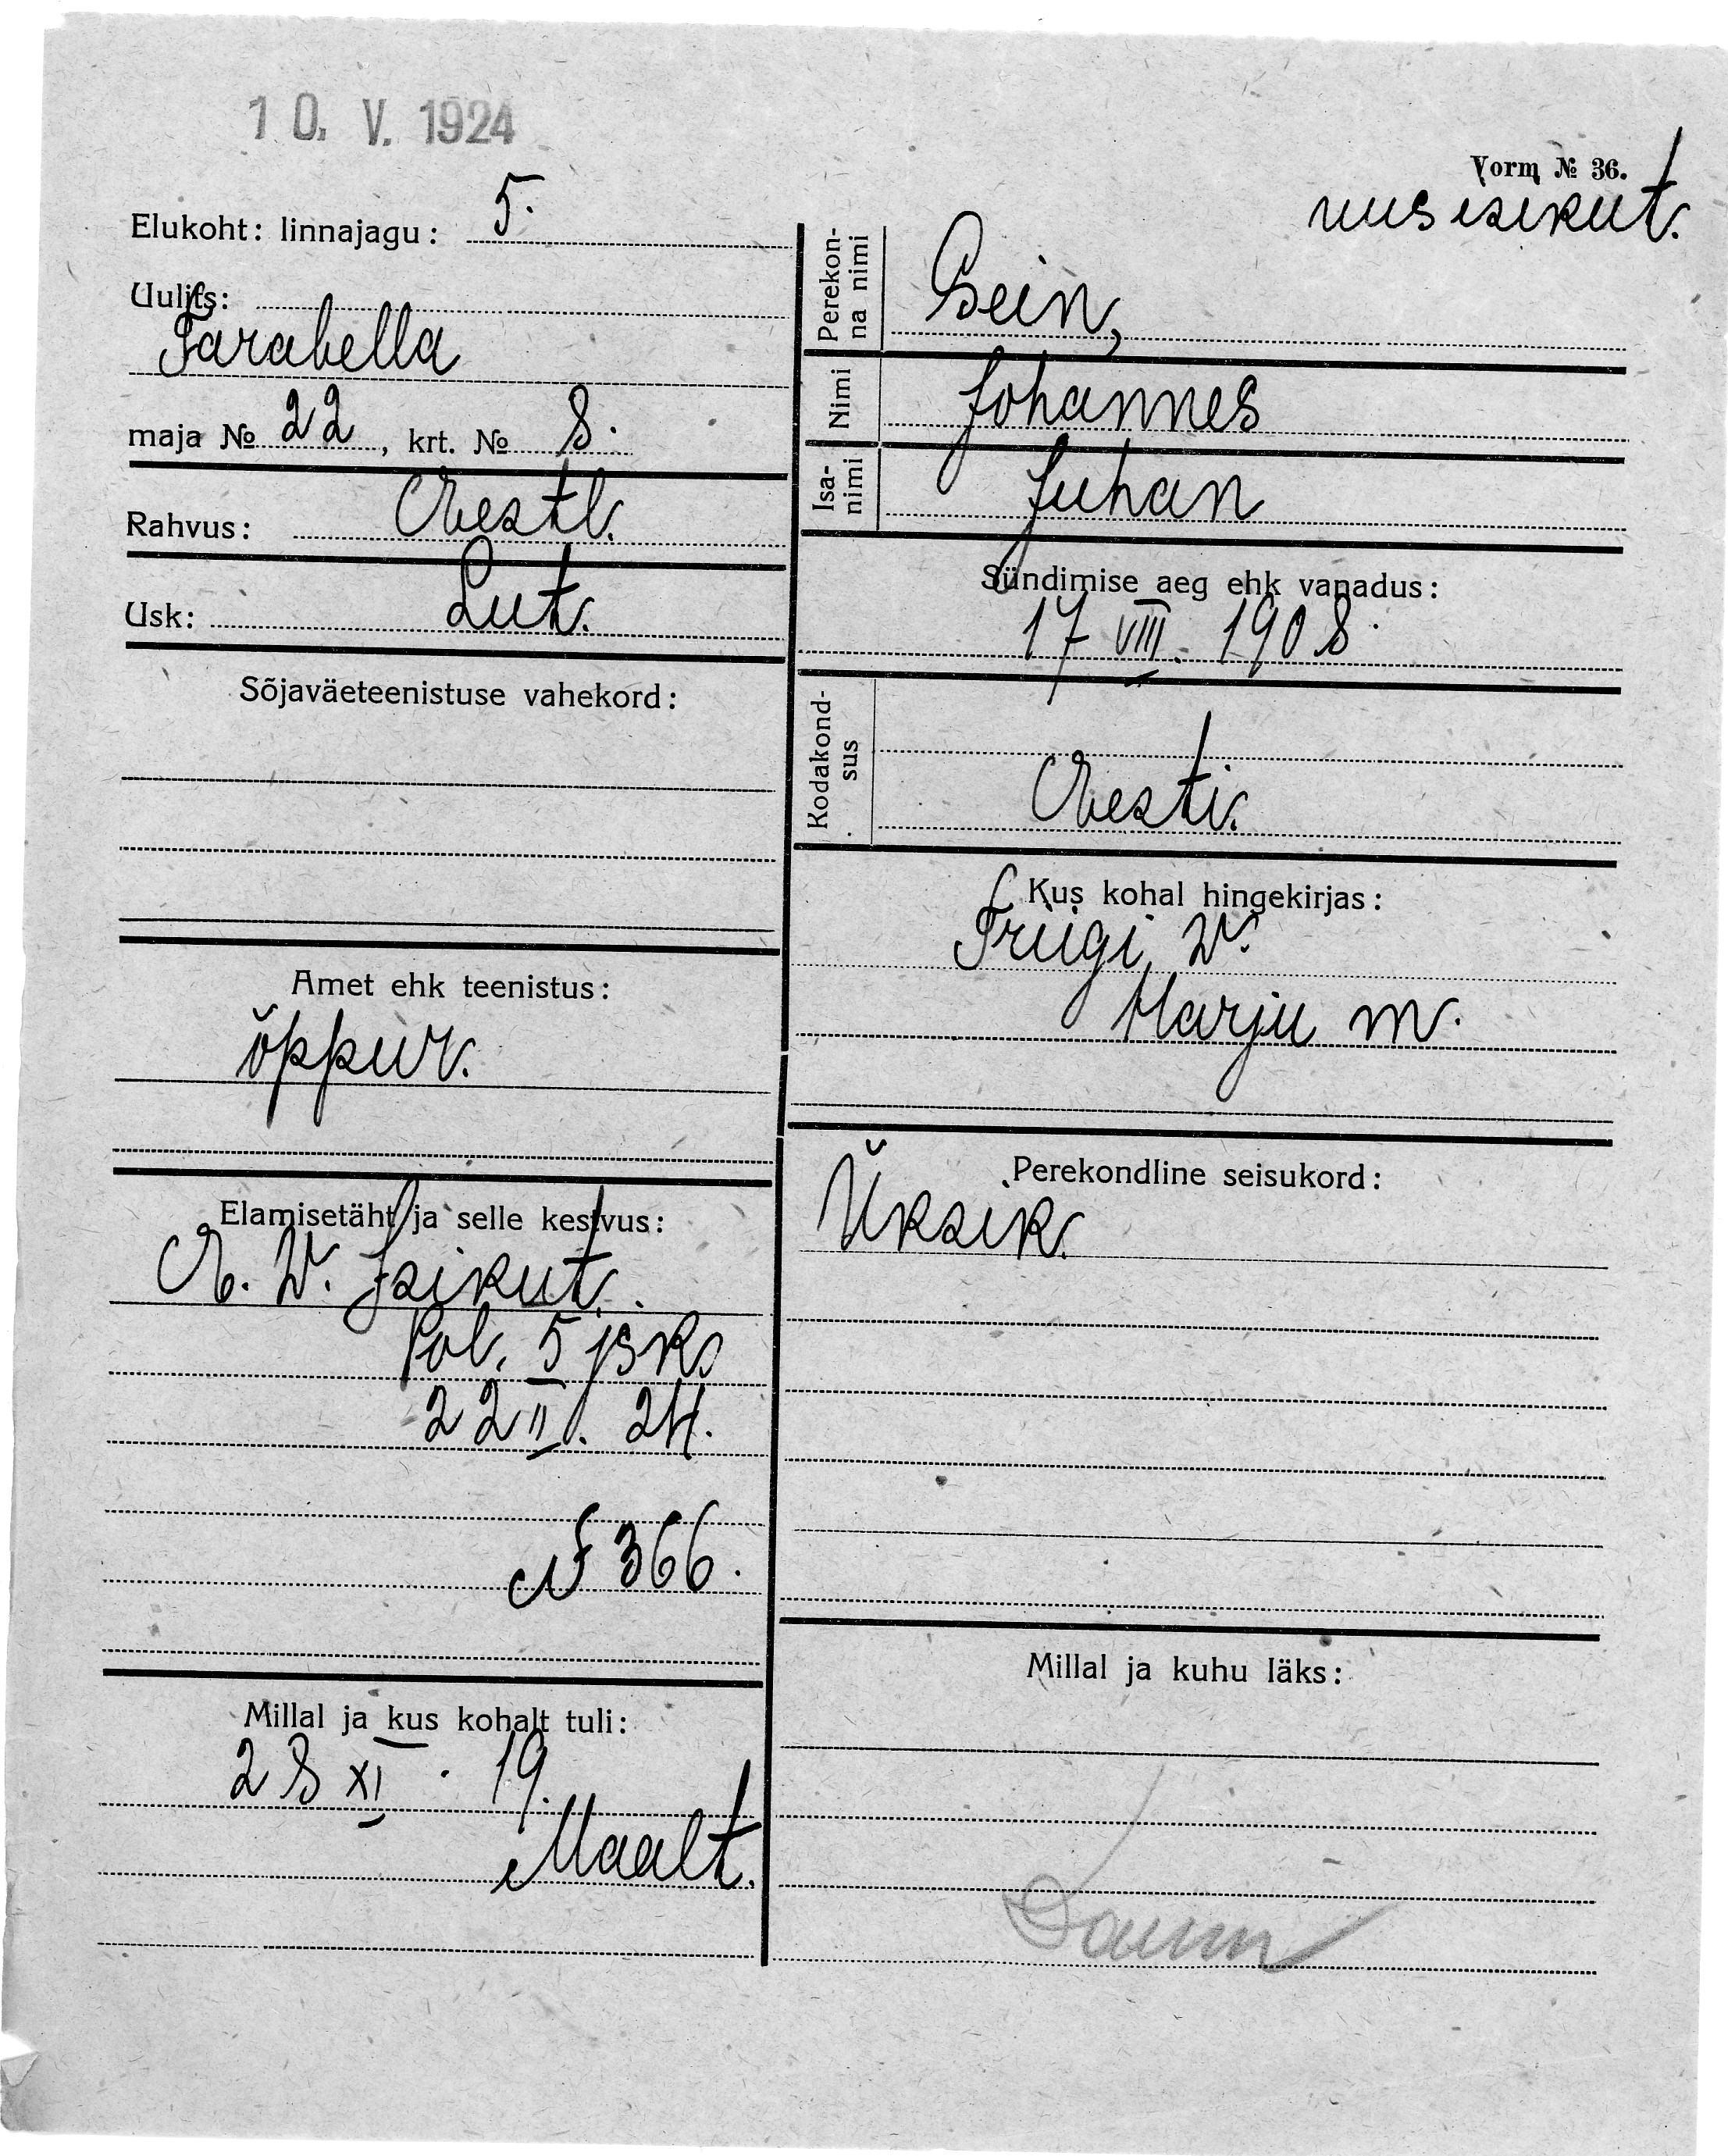 10. V. 1924
Vorm № 36.
uus isikut.
Elukoht: linnajagu: 5.
Uulits:
Tarabella
maja № 22, krt. № 8.
Rahvus: Eestl.
Usk: Lut.
Sõjaväeteenistuse vahekord:
Amet ehk teenistus:
õppur.
Elamisetäht ja selle kestvus:
E. W. Isikut.
Pol. 5 jsk.
22 II. 24.
N 366.
Millal ja kus kohalt tuli:
28 XI. 19.
Maalt.
Perekonna nimi
Sein,
Nimi Johannes
Isanimi Juhan
Sündimise aeg ehk vanadus:
17 VIII. 1908.
Kodakondsus
Eesti.
Kus kohal hingekirjas:
Triigi W.
Harju m.
Perekondline seisukord:
Üksik.
Millal ja kuhu läks: